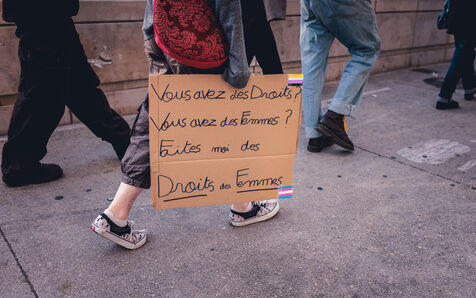 Vous avez des Droits?
Vous avez des Femmes?
Faites moi des
Droits des Femmes